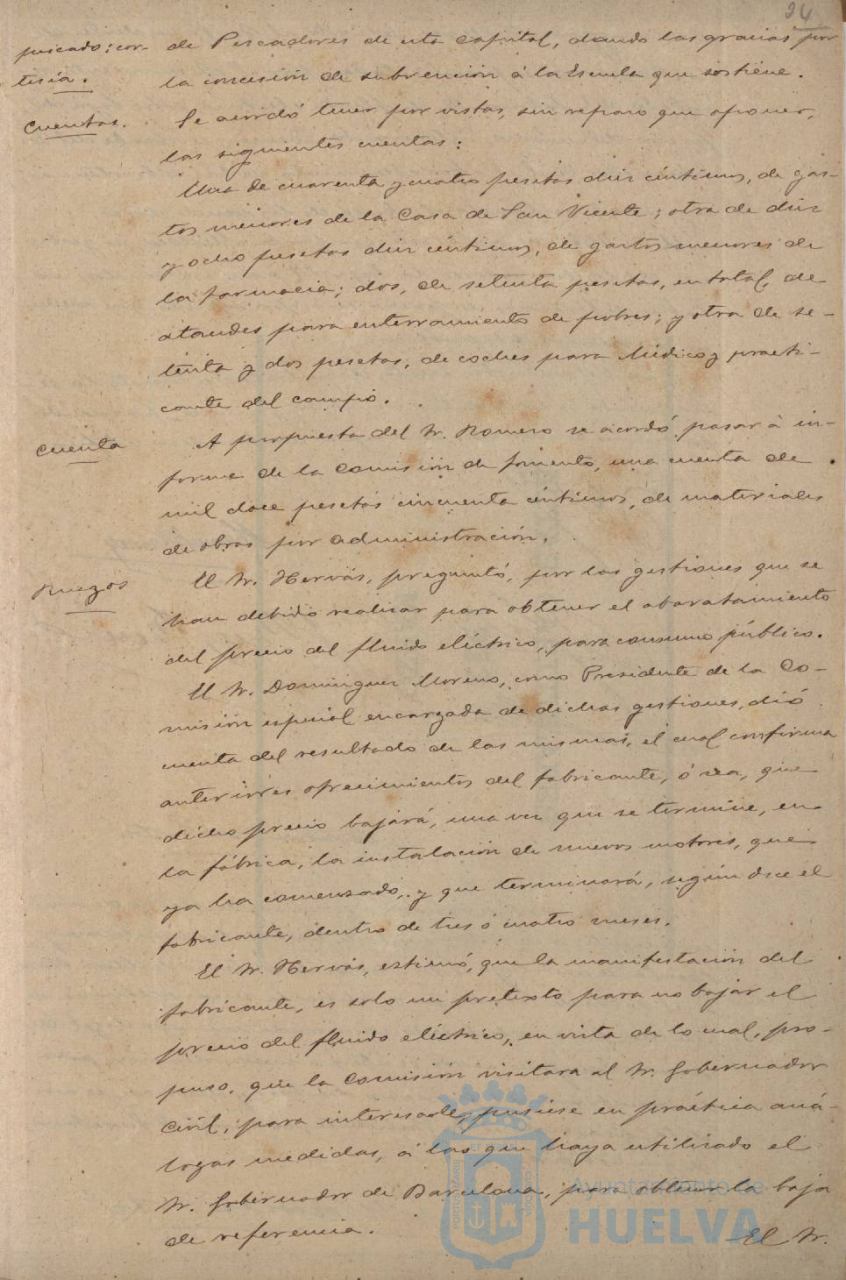 34
puscado: cor- de Pescadores de esta capital, dando las gracias por
tesía. la concesión de subvención á la Escuela que sostiene.
Cuentas. Se acordó tener por vistas, sin reparo que oponer,
las siguientes cuentas:
Una de cuarenta y cuatro pesetas diez céntimos, de gas-
tos menores de la Casa de San Vicente; otra de diez
y ocho pesetas diez céntimos, de gastos menores de
la farmacia; dos, de setenta pesetas, en total, de
ataudes para enterramiento de pobres; y otra de se-
tenta y dos pesetas, de coches para Médico y practi-
cante del campo.
Cuenta A propuesta del Sr. Romero se acordó pasar á in-
forme de la Comisión de fomento, una cuenta de
mil doce pesetas cincuenta céntimos, de materiales
de obras por administración.
Ruegos El Sr. Hervás, preguntó, por las gestiones que se
han debido realizar para obtener el abaratamiento
del precio del fluido eléctrico, para consumo público.
El Sr. Domínguez Moreno, como Presidente de la Co-
misión especial encargada de dichas gestiones, dió
cuenta del resultado de las mismas, el cual confirma
anteriores ofrecimientos del fabricante, ó sea, que
dicho precio bajará, una vez que se termine, en
la fábrica, la instalación de nuevos motores, que
ya ha comenzado, y que terminará, según dice el
fabricante, dentro de tres ó cuatro meses.
El Sr. Hervás, estimó, que la manifestación del
fabricante, es solo un pretexto para no bajar el
precio del fluido eléctrico, en vista de lo cual, pro-
puso, que la Comisión visitara al Sr. Gobernador
civil, para interesarle, pusiese en práctica aná-
logas medidas, á las que haya utilizado el
Sr. Gobernador de Barcelona, para obtener la baja
de referencia. El Sr.
Ayuntamiento de
HUELVA